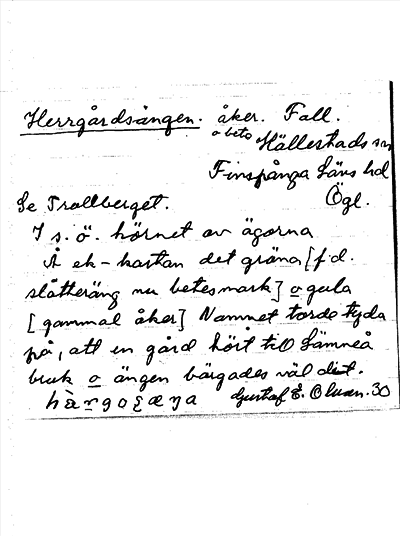 Herrgårdsängen. åker. Fall.
o bete Hällestads sn
Finspånga läns hd
Se Trollberget. Ögl.
I s. ö. hörnet av ägorna
Å ek-kartan det gröna [f d.
slåtteräng nu betesmark] o gula
[gammal åker] Namnet torde tyda
på, att en gård hört till Sämneå
bruk o ängen bärgades väl dit.
Gustaf E. Olsson. 30